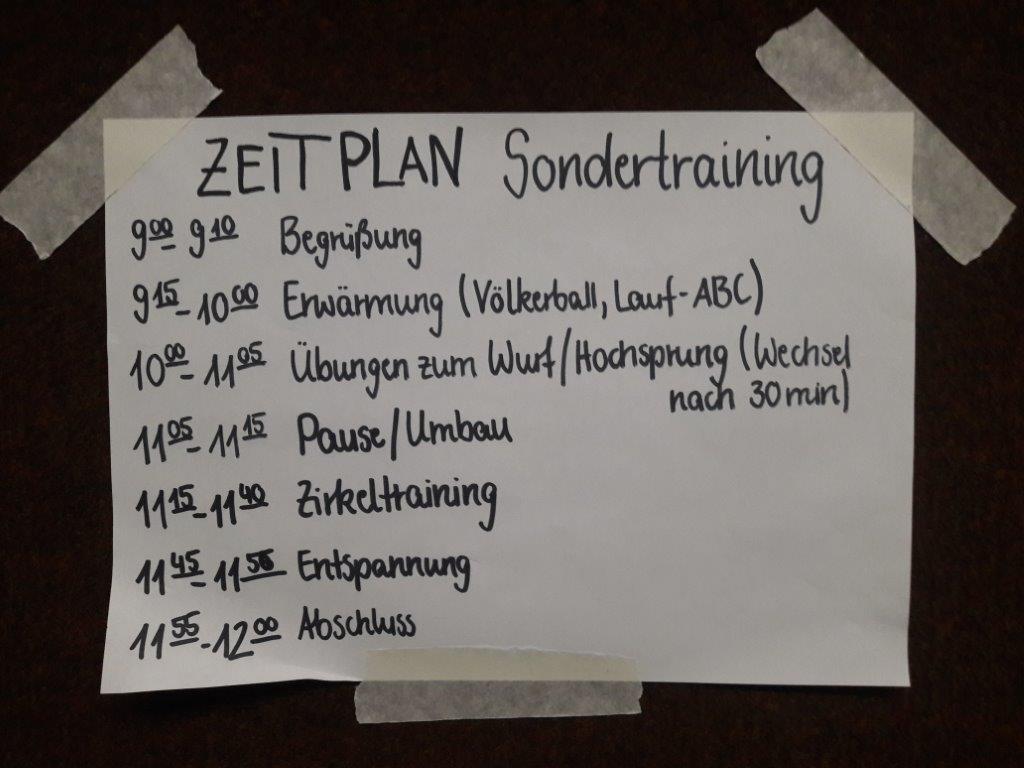 ZEITPLAN Sondertraining
9⁰⁰- 9¹⁰ Begrüßung
9¹⁵-10⁰⁰ Erwärmung (Völkerball, Lauf-ABC)
10⁰⁰- 11⁰⁵ Übungen zum Wurf/Hochsprung (Wechsel
nach 30min)
11⁰⁵- 11¹⁵ Pause/Umbau
11¹⁵-11⁴⁰ Zirkeltraining
11⁴⁵- 11⁵⁵ Entspannung
11⁵⁵-12⁰⁰ Abschluss